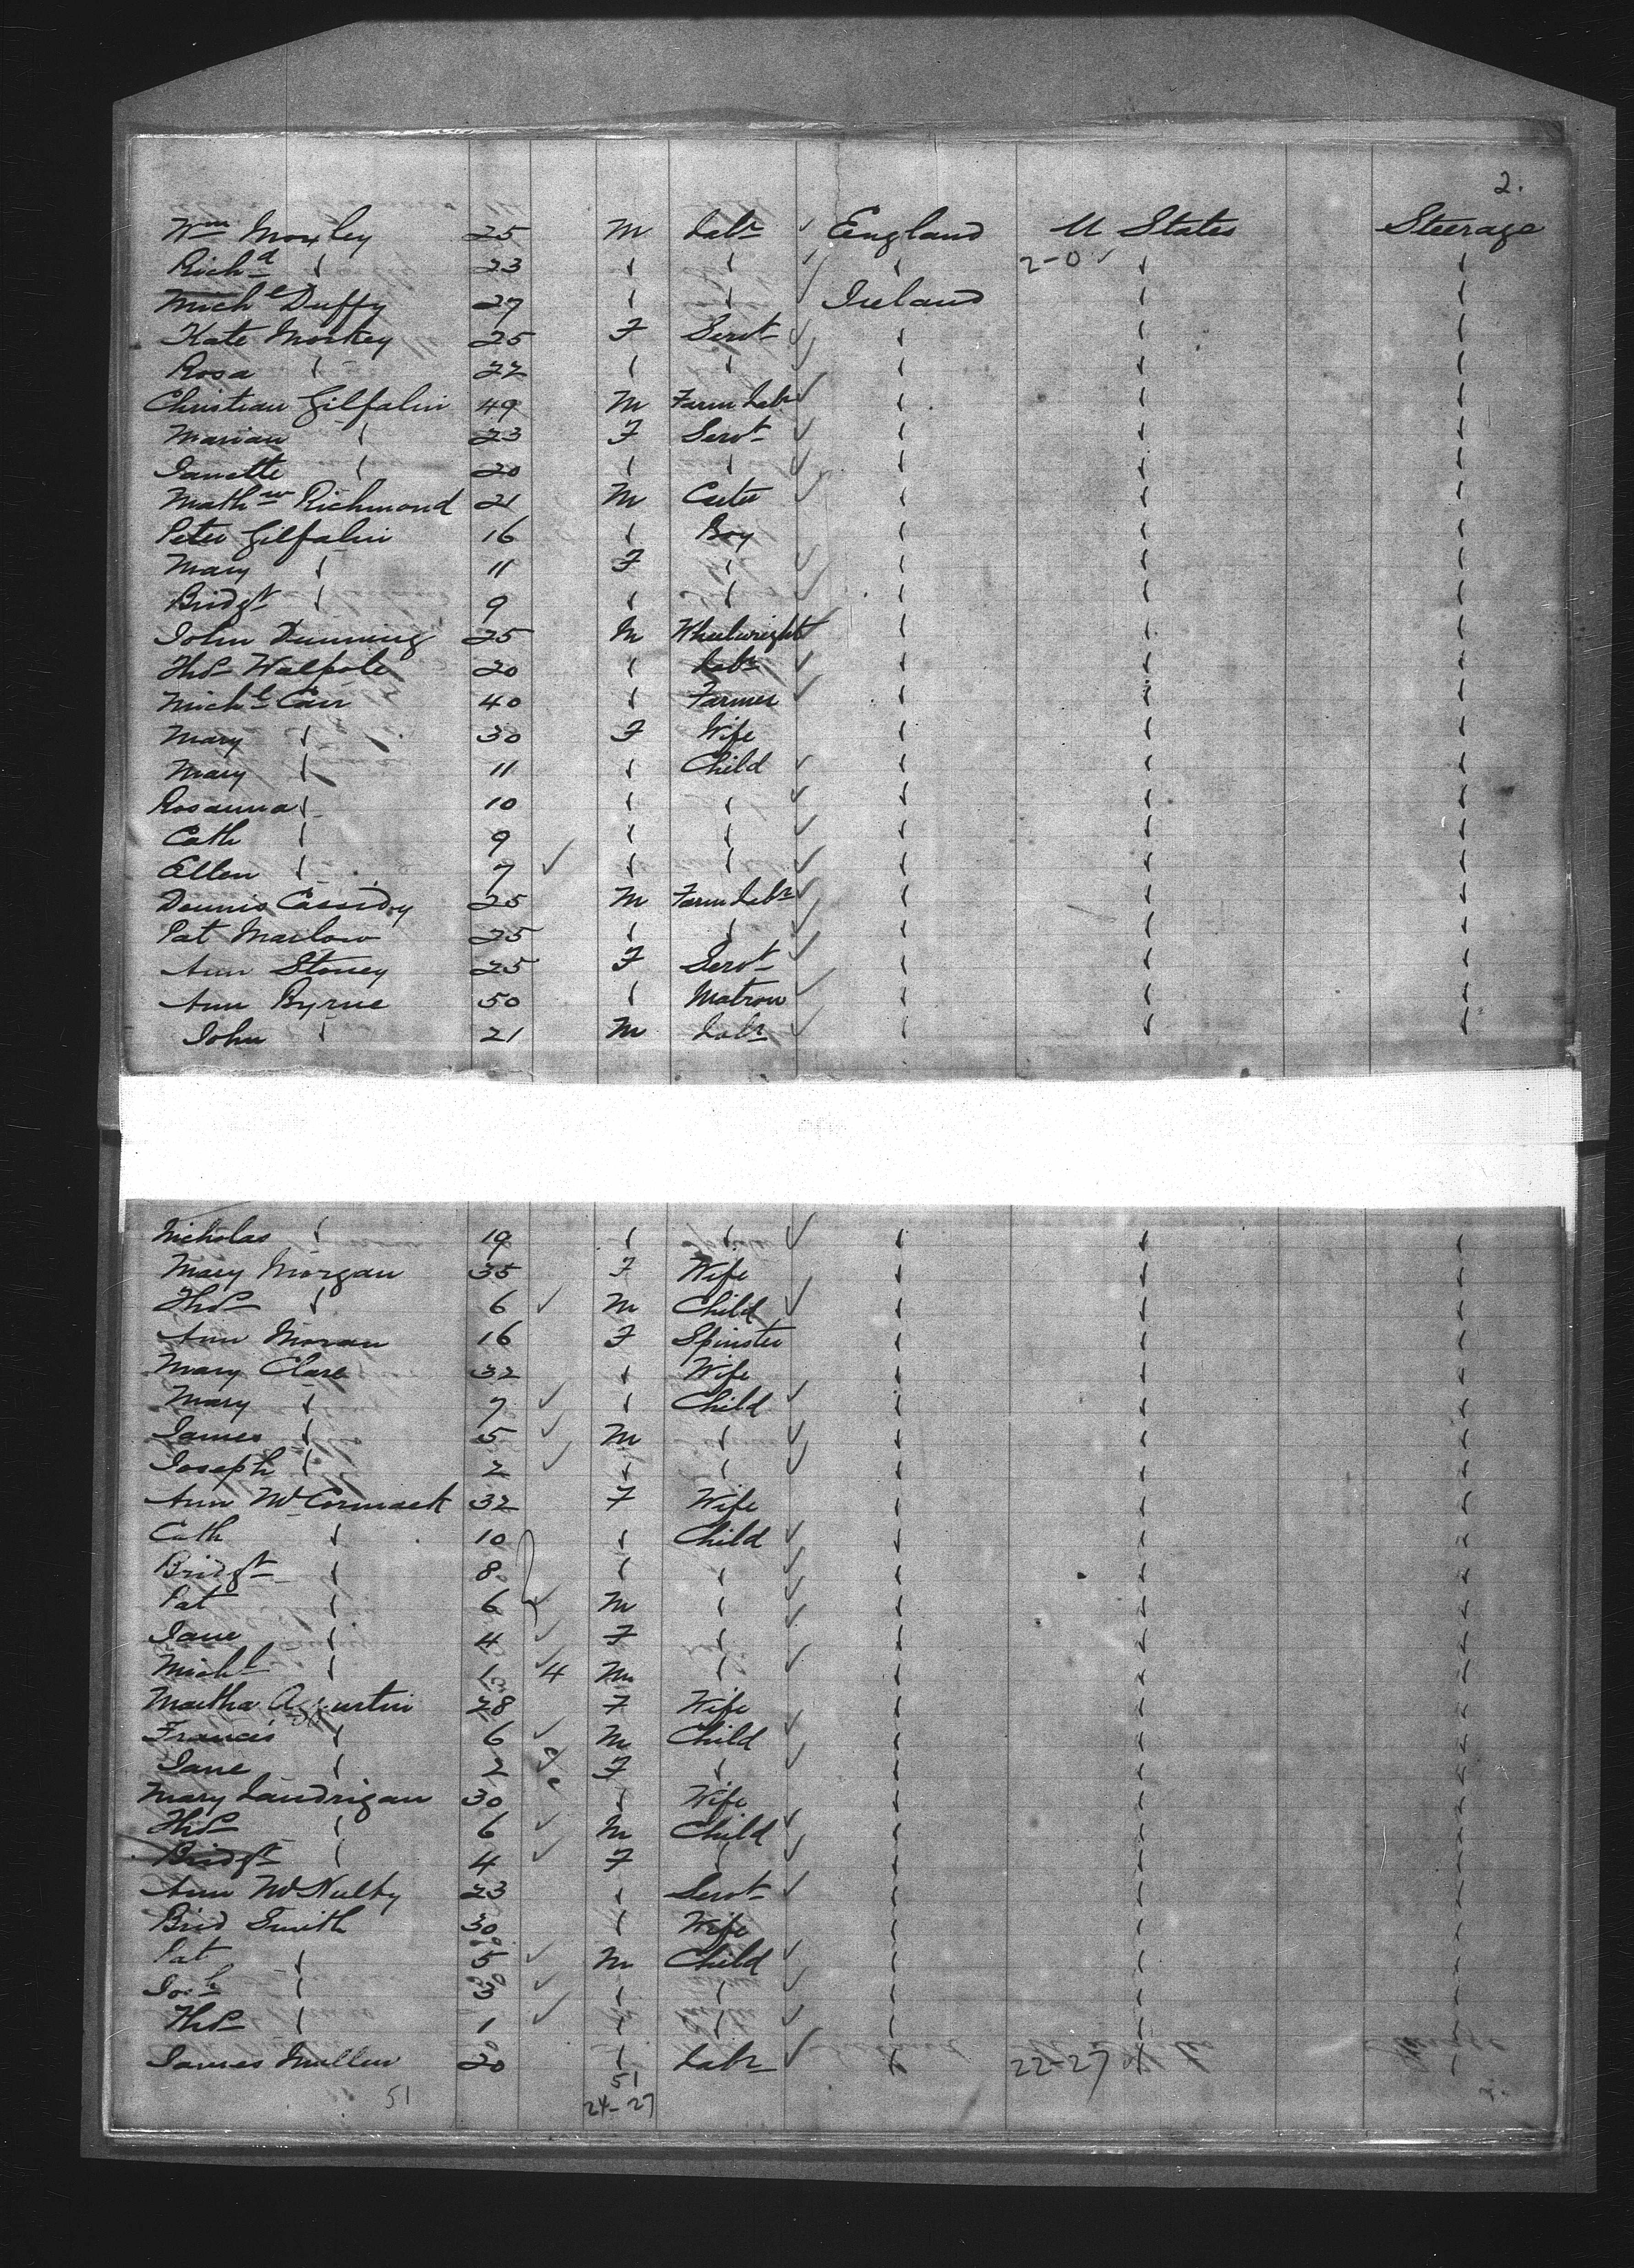 2.
Wm Moxley 25 M Labr ✓ England U States Steerage
Richd " 23 " " ✓ " 2-0 ✓ " "
Michl Duffy 27 " " ✓ Ireland " "
Kate Morkey 25 F Servt ✓ " " "
Rosa " 22 " " ✓ " " "
Christian Gilfalin 49 M Farm Labr ✓ " " "
Marian " 23 F Servt ✓ " " "
Janette " 20 " " ✓ " " "
Mathw Richmond 21 M ✓ " " "
Peter Gilfalin 16 " Boy " " "
Mary " 11 F " ✓ " " "
Bridgt " 9 " " ✓ " " "
John Dunning 25 M Wheelwright ✓ " " "
Thos Walpole 20 " Labr ✓ " " "
Michl Carr 40 " Farmer ✓ " " "
Mary " 30 F Wife " " "
Mary " 11 " Child ✓ " " "
Rosanna " 10 " " ✓ " " "
Cath " 9 " " ✓ " " "
Ellen " 7 ✓ " " ✓ " " "
Dennis Cassidy 25 M Farm Labr ✓ " " "
Pat Marlow 25 " " ✓ " " "
Ann Stoney 25 F Servt ✓ " " "
Ann Byrne 50 " Matron ✓ " " "
John " 21 M Labr ✓ " " "
Nicholas " 19 " " ✓ " " "
Mary Morgan 35 F Wife " " "
Thos " 6 ✓ M Child ✓ " " "
Ann Moran 16 F Spinster " " "
Mary Clare 32 " Wife " " "
Mary " 7 ✓ " Child ✓ " " "
James " 5 ✓ M " ✓ " " "
Joseph " 2 ✓ " " ✓ " " "
Ann McCormack 32 F Wife " " "
Cath " 10 " Child ✓ " " "
Bridgt " 8 " " ✓ " " "
Pat " 6 ✓ M " ✓ " " "
Jane " 4 ✓ F " ✓ " " "
Michl " 1 ✓ 4 M " ✓ " " "
Martha 28 F Wife " " "
Francis " 6 ✓ M Child ✓ " " "
Jane " 2 ✓ F " ✓ " " "
Mary Landrigan 30 " Wife " " "
Thos " 6 ✓ M Child ✓ " " "
Bridgt " 4 ✓ F " ✓ " " "
Ann McNulty 23 " Servt ✓ " " "
Brid Smith 30 " Wife " " "
Pat " 5 ✓ M Child ✓ " " "
" 3 ✓ " " ✓ " " "
Thos " 1 ✓ " " ✓ " " "
James Mullen 20 " Labr ✓ " 22-27 " "
51 51
24-27